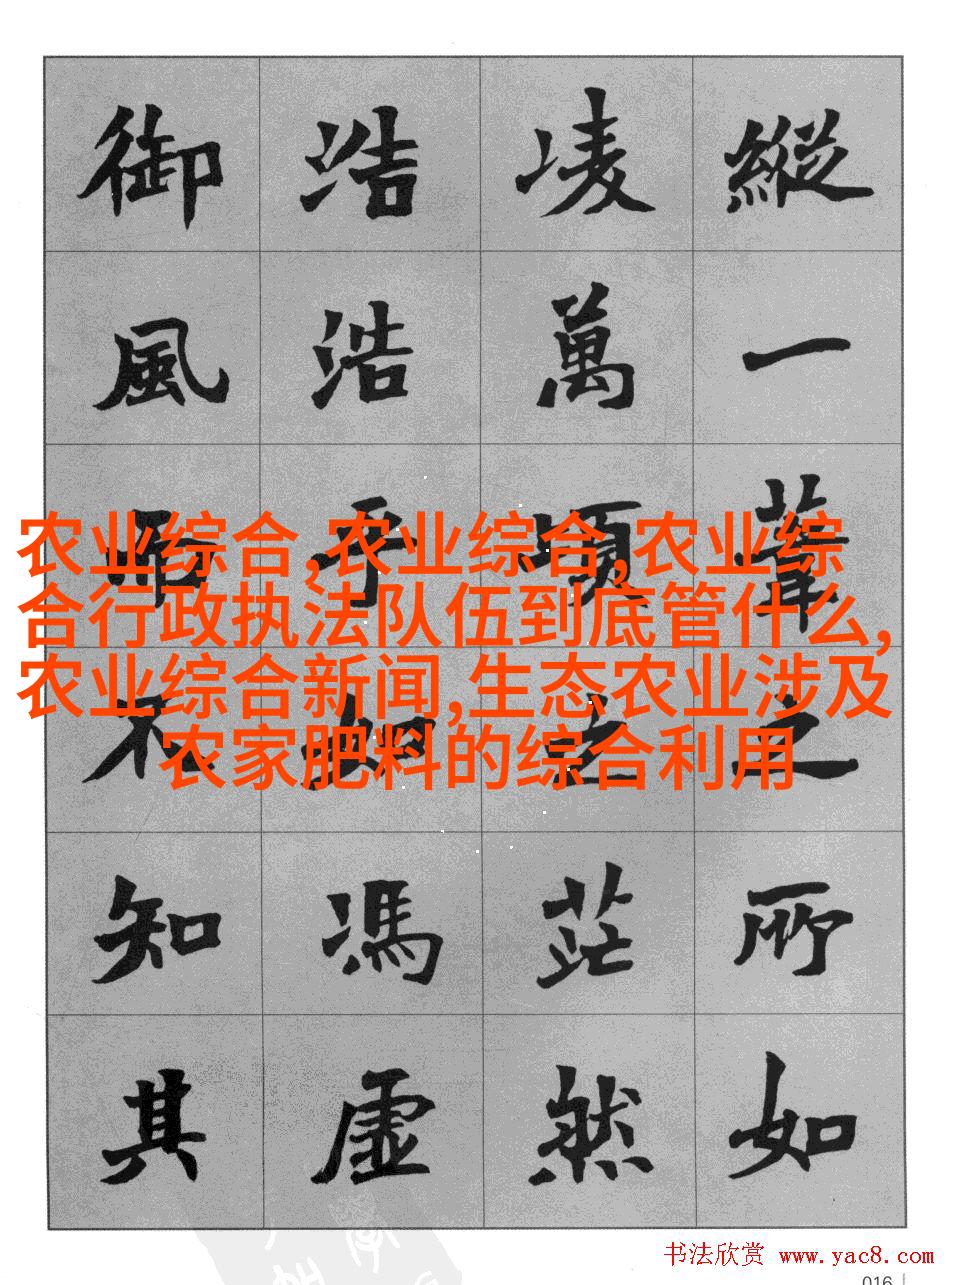 縱一葦之所如
凌萬頃之茫然
浩浩乎如馮虛
御風而不知其
农业综合,农业综合,农业综
合行政执法队伍到底管什么,
农业综合新闻,生态农业涉及
农家肥料的综合利用
书法欣赏 www.yac8.com
016